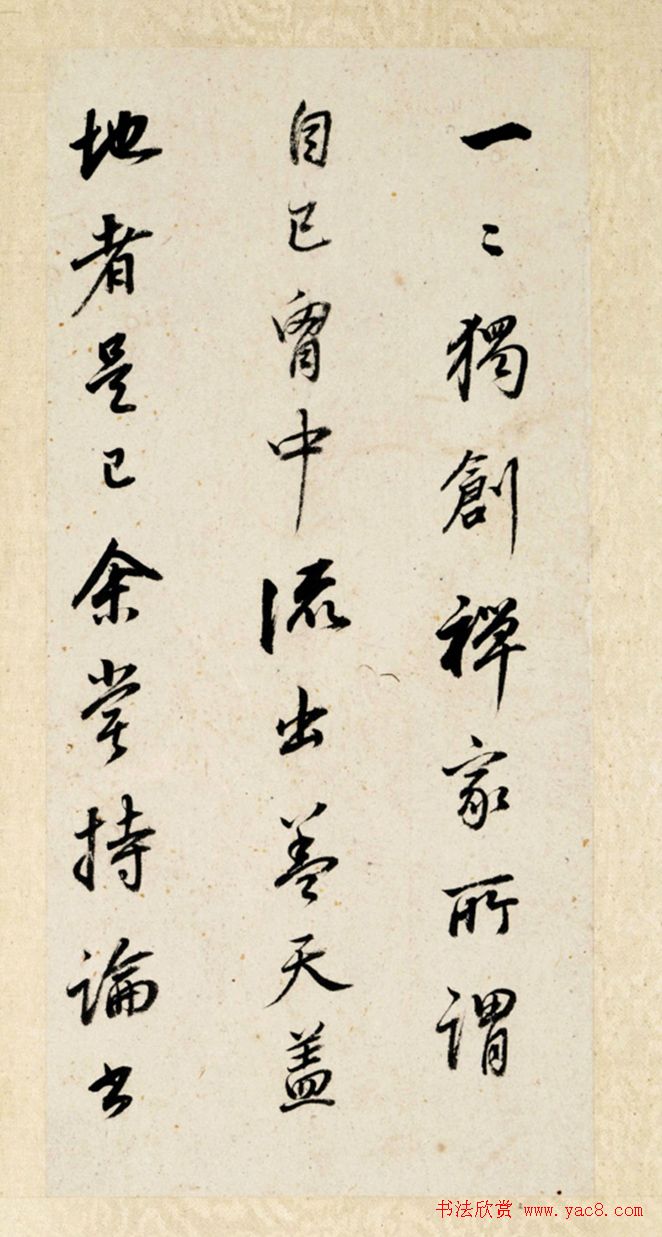 一〻獨創禪家所謂
自己胷中流出葢天蓋
地者是已余嘗持論書
书法欣赏 www.yac8.com